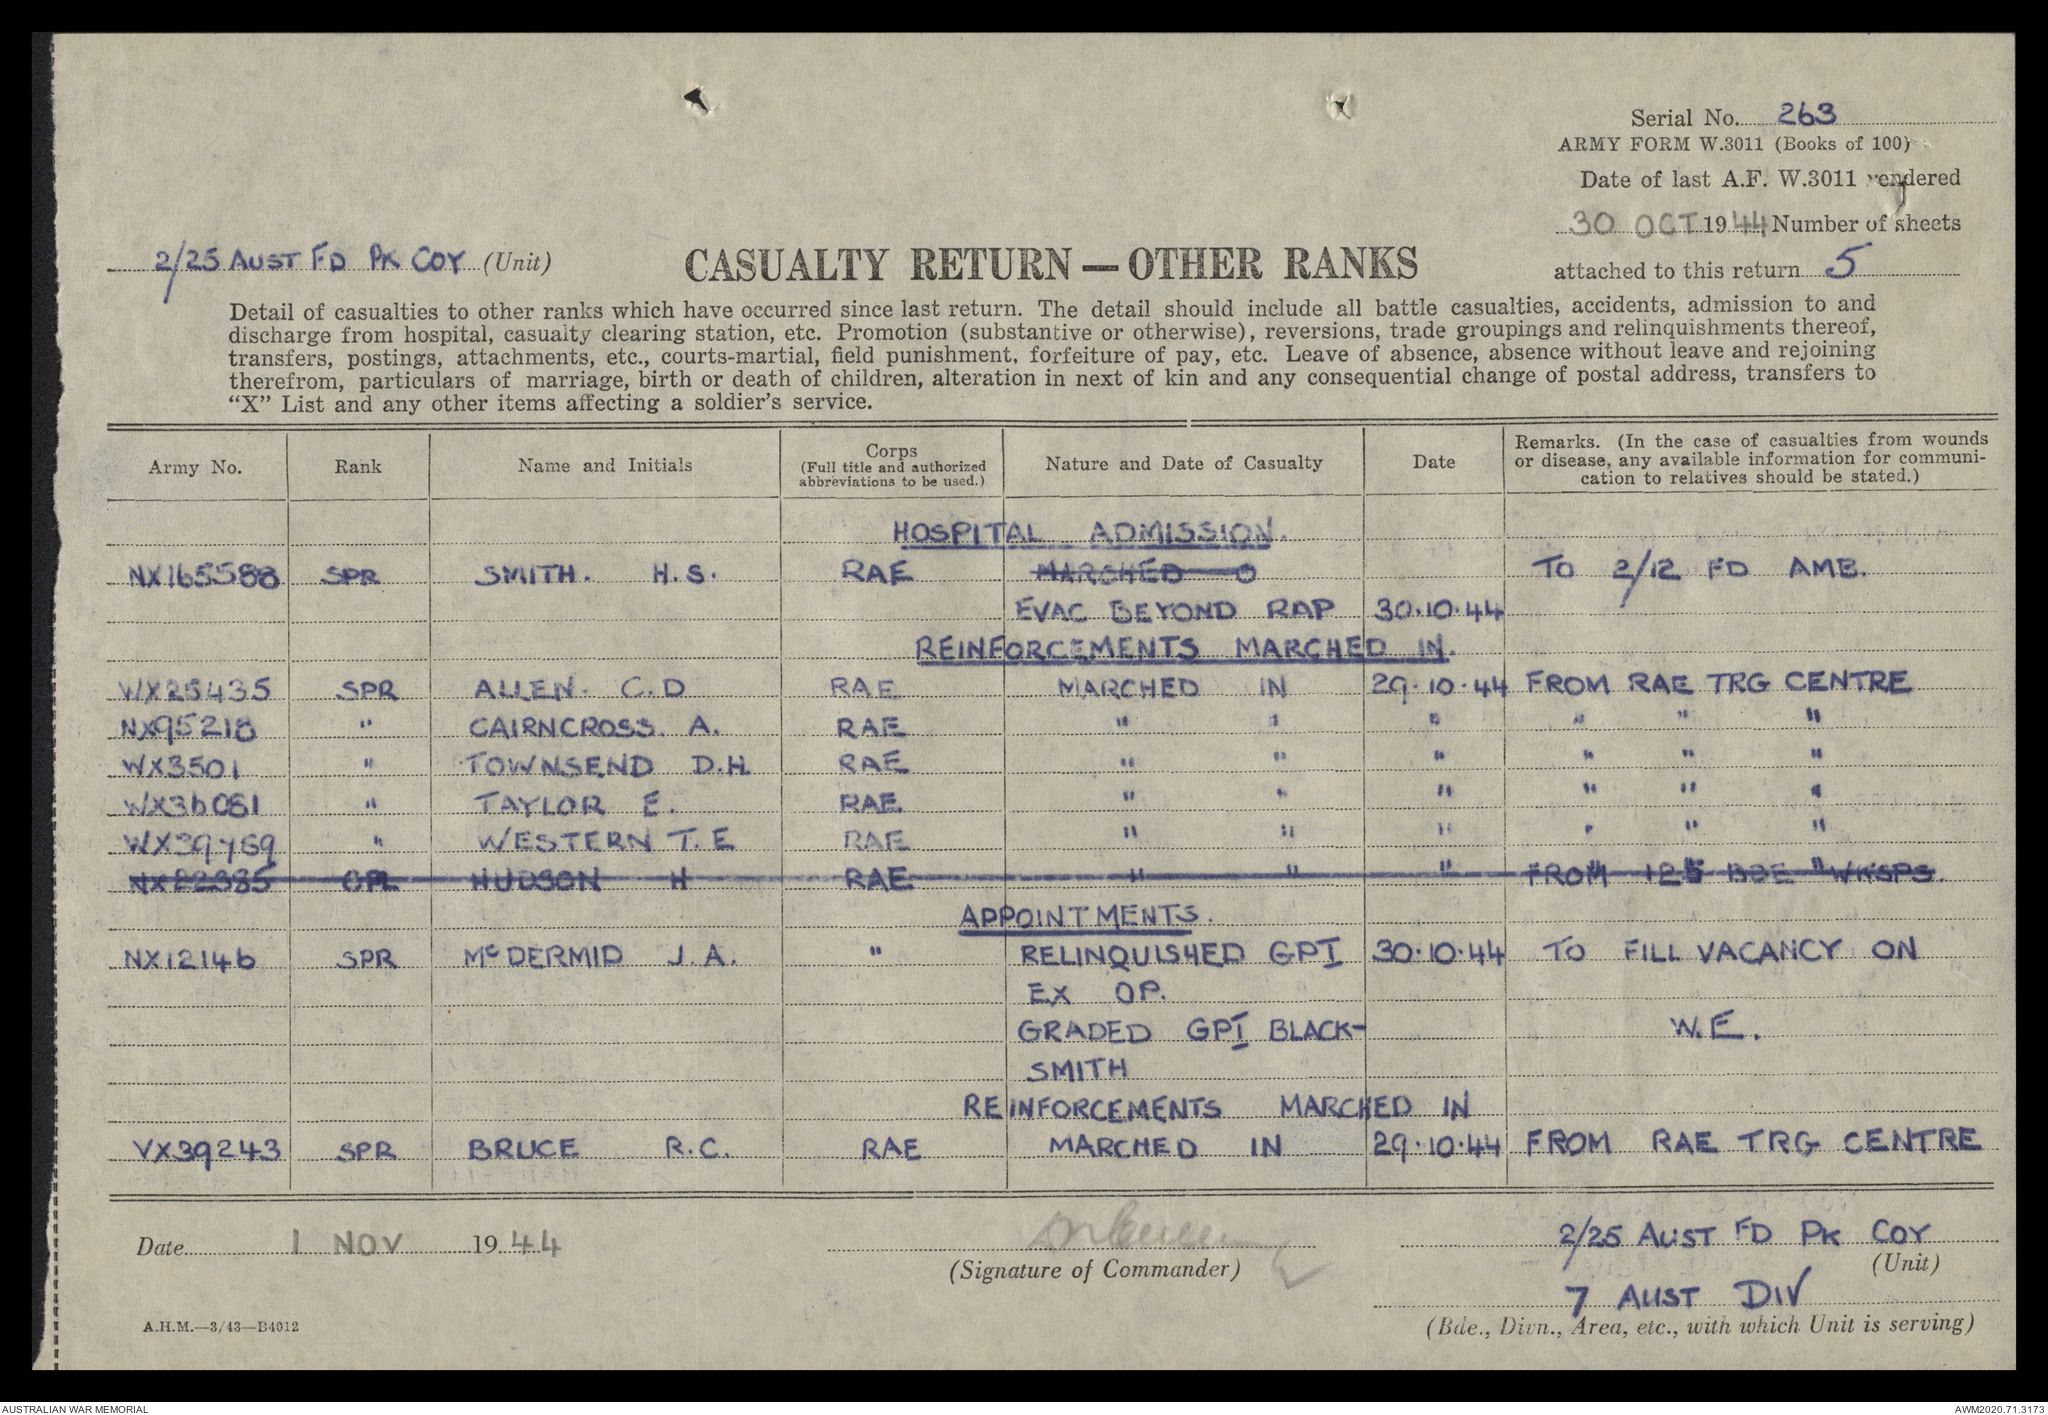 Serial No. 263
ARMY FORM W.3011 (Books of 100)
Date of last A.F. W.3011 rendered
30 OCT 1944 Number of sheets
attached to this return 5
2/25 AUST FD PK COY (Unit)
CASUALTY RETURN — OTHER RANKS
Detail of casualties to other ranks which have occurred since last return. The detail should include all battle casualties, accidents, admission to and
discharge from hospital, casualty clearing station, etc. Promotion (substantive or otherwise), reversions, trade groupings and relinquishments thereof,
transfers, postings, attachments, etc., courts-martial, field punishment, forfeiture of pay, etc. Leave of absence, absence without leave and rejoining
therefrom, particulars of marriage, birth or death of children, alteration in next of kin and any consequential change of postal address, transfers to
"X" List and any other items affecting a soldier's service.
Army No. Rank Name and Initials Corps (Full title and authorized abbreviations to be used.) Nature and Date of Casualty Date Remarks. (In the case of casualties from wounds or disease, any available information for communi-cation to relatives should be stated.)
HOSPITAL ADMISSION.
NX165588 SPR SMITH. H.S. RAE MARCHED O TO 2/12 FD AMB.
EVAC BEYOND RAP 30.10.44
REINFORCEMENTS MARCHED IN.
WX25435 SPR ALLEN. C.D RAE MARCHED IN 29.10.44 FROM RAE TRG CENTRE
NX95218 " CAIRNCROSS. A. RAE " " " " " "
WX3501 " TOWNSEND D.H. RAE " " " " " "
WX36081 " TAYLOR E. RAE. " " " " " "
WX39769 " WESTERN T.E RAE " " " " " "
NX22385 CPL HUDSON H RAE " " " FROM 125 BDE WKSPS.
APPOINTMENTS.
NX12146 SPR McDERMID J.A. " RELINQUISHED GPI 30.10.44 TO FILL VACANCY ON
EX OP.
GRADED GPI BLACK- W.E.
SMITH
REINFORCEMENTS MARCHED IN
VX39243 SPR BRUCE R.C. RAE MARCHED IN 29.10.44 FROM RAE TRG CENTRE
Date 1 NOV 1944
(Signature of Commander)
2/25 AUST FD PK COY
(Unit)
7 AUST DIV
(Bde., Divn., Area, etc., with which Unit is serving)
A.H.M.—3/43—B4012
AUSTRALIAN WAR MEMORIAL
AWM2020.71.3173